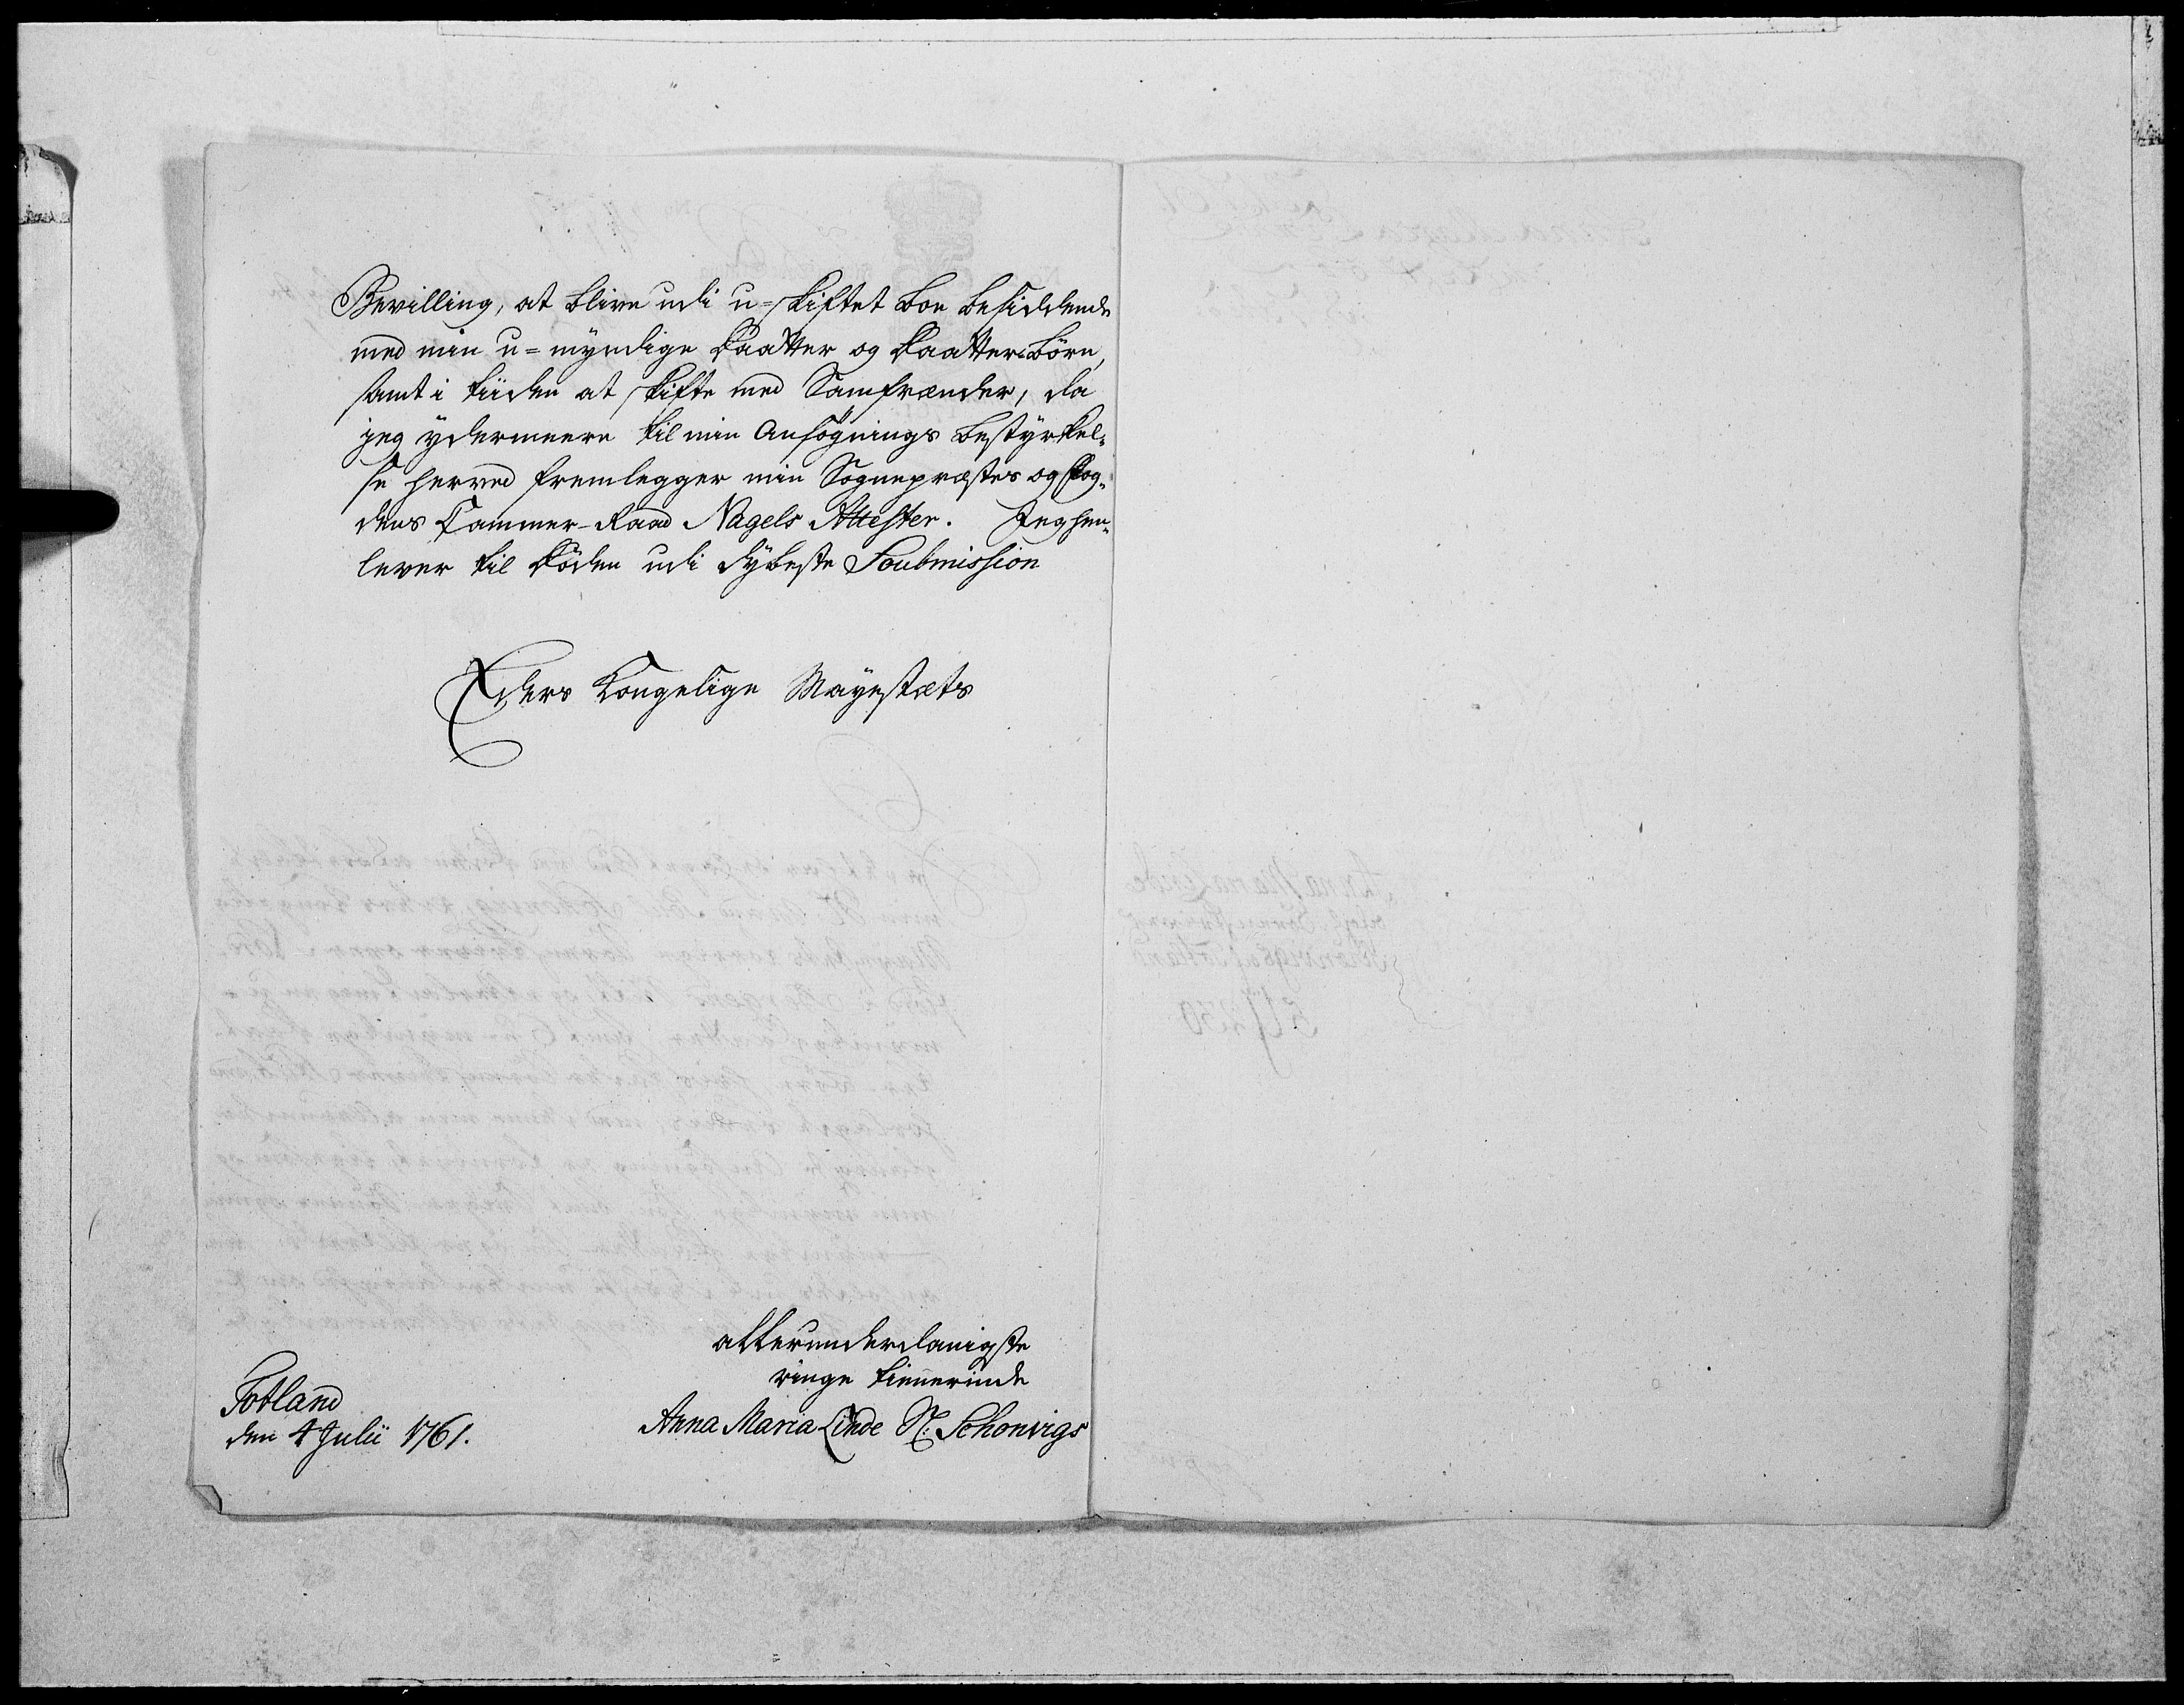 Bevilling, at blive udi u-skiftet Boe besiddende
med min u-myndige Daatter og Daatter-Börn,
samt i tiiden at skifte med Samfrænder, da
jeg ydermeere til min Ansögnings bestyrkel-
se herved fremlegger min Sognepræstes og Fog-
dens Cammer-Raad Nagels Attester. Jeg hen-
lever til Döden udi dybeste Soubmission
Eders Kongelige Mayestæts
allerunderdanigste
ringe tienerinde
Anna Maria Linde Sl: Schonvigs
Totland
den 4 Julii 1761.